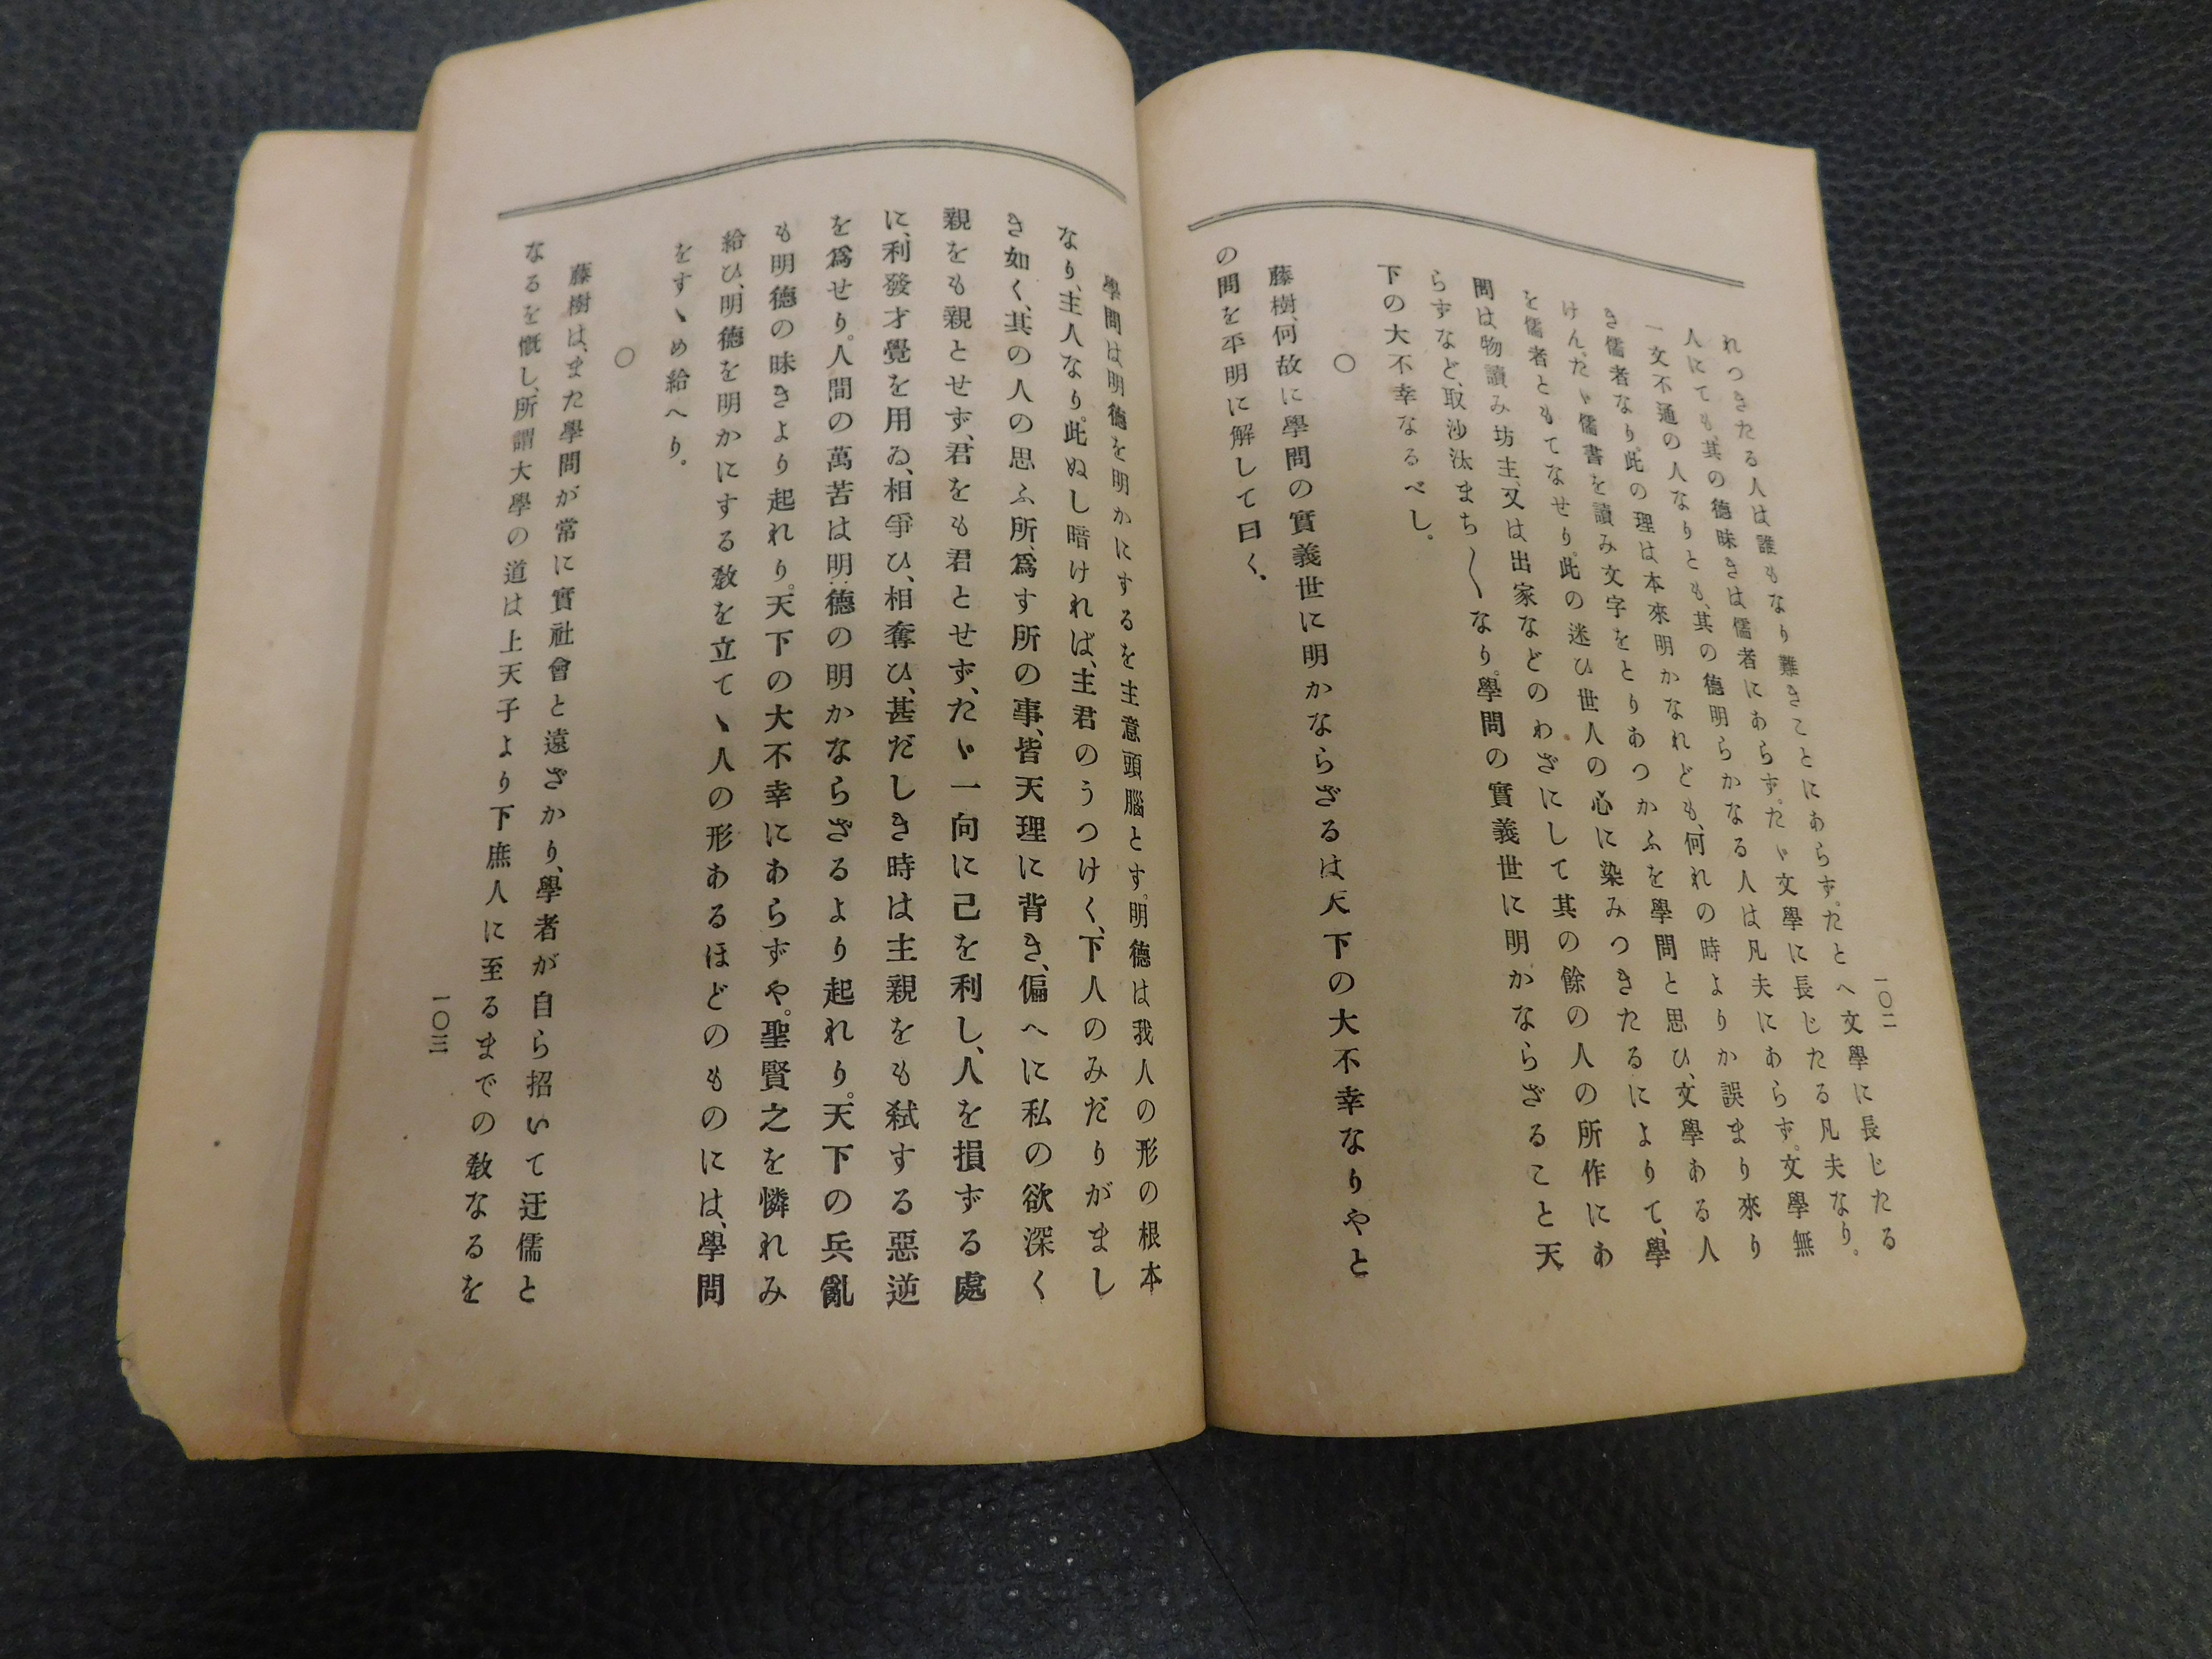 一〇二
れつきたる人は誰もなり難きことにあらず。たとへ文學に長じたる
人にても、其の德昧きは儒者にあらず。たゞ文學に長じたる凡夫なり。
一文不通の人なりとも、其の德明らかなる人は凡夫にあらず。文學無
き儒者なり。此の理は本來明かなれども、何れの時よりか誤まり來り
けん。たゞ儒書を讀み文字をとりあつかふを學問と思ひ、文學ある人
を儒者ともてなせり。此の迷ひ世人の心に染みつきたるによりて、學
問は、物讀み坊主、又は出家などのわざにして其の餘の人の所作にあ
らずなど、取沙汰まち〱なり。學問の實義世に明かならざること天
下の大不幸なるべし。
〇
藤樹、何故に學問の實義世に明かならざるは天下の大不幸なりやと
の問を平明に解して曰く、
學問は明德を明かにするを主意頭腦とす。明德は我人の形の根本
なり、主人なり。此ぬし暗ければ、主君のうつけく、下人のみだりがまし
き如く、其の人の思ふ所、爲す所の事、皆天理に背き、偏へに私の欲深く
親をも親とせず、君をも君とせず、たゞ一向に己を利し、人を損ずる處
に、利發才覺を用ゐ、相爭ひ、相奪ひ、甚だしき時は主親をも弑する惡逆
を爲せり。人間の萬苦は明德の明かならざるより起れり。天下の兵亂
も明德の昧きより起れり。天下の大不幸にあらずや。聖賢之を憐れみ
給ひ、明德を明かにする敎を立てゝ人の形あるほどのものには、學問
をすゝめ給へり。
〇
藤樹は、また學問が常に實社會と遠ざかり、學者が自ら招いて迂儒と
なるを慨し、所謂大學の道は上天子より下庶人に至るまでの敎なるを
一〇三